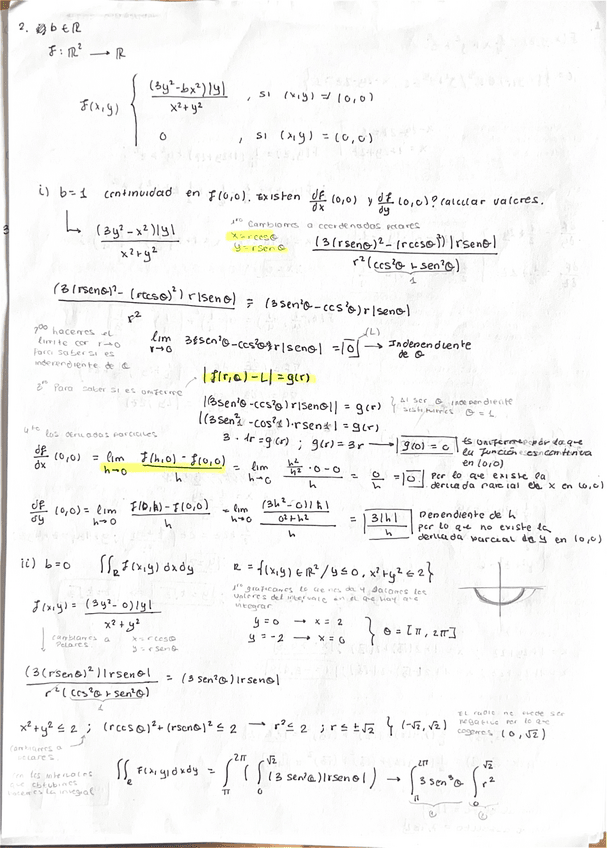 2. b ∈ ℝ
f: ℝ² → ℝ
f(x,y) { (3y²-bx²)|y| / x²+y² , si (x,y) ≠ (0,0)
0 , si (x,y) = (0,0)
i) b=1 continuidad en f(0,0). Existen df/dx (0,0) y df/dy (0,0)? calcular valores.
↳ (3y²-x²)|y| / x²+y²
1ero cambiamos a coordenadas polares
x=rcosθ
y=rsenθ
(3(rsenθ)²-(rcosθ)²)|rsenθ| / r²(cos²θ+sen²θ)
1
(3(rsenθ)²-(rcosθ)²)r|senθ| / r² = (3sen²θ-cos²θ)r|senθ|
2do hacemos el limite con r→0 para saber si es independiente de θ
lim r→0 3sen²θ-cos²θ r|senθ| = |0| (L) → Independiente de θ
|f(r,θ)-L| = g(r)
3ero Para saber si es uniforme
|(3sen²θ-cos²θ)r|senθ|| = g(r)
|(3sen²1-cos²1)·rsen1| = g(r)
} al ser θ independiente sustituimos θ=1
3·1r = g(r) ; g(r) = 3r → g(0)=0 Es uniforme por lo que la función es continua en (0,0)
4to las derivadas parciales
df/dx (0,0) = lim h→0 f(h,0)-f(0,0) / h = lim h→0 h²/h² ·0-0 / h = 0/h = |0| Por lo que existe la derivada parcial de x en (0,0)
df/dy (0,0) = lim h→0 f(0,h)-f(0,0) / h = lim h→0 (3h²-0)|h| / 0²+h² / h = 3|h| / h Dependiente de h por lo que no existe la derivada parcial de y en (0,0)
ii) b=0 ∬R f(x,y)dxdy R = {(x,y)∈ℝ²/y≤0, x²+y²≤2}
1ero graficamos lo que nos da y sacamos los valores del intervalo en el que hay que integrar
f(x,y) = (3y²-0)|y| / x²+y²
y=0 → x=2
y=-2 → x=0
} θ = [π, 2π]
cambiamos a Polares
x=rcosθ
y=rsenθ
(3(rsenθ)²)|rsenθ| / r²(cos²θ+sen²θ) = (3sen²θ)|rsenθ|
1
x²+y² ≤ 2 ; (rcosθ)²+(rsenθ)² ≤ 2 → r² ≤ 2 ; r ≤ ±√2 } (-√2, √2)
El radio no puede ser negativo por lo que cogemos (0, √2)
cambiamos a polares
Con los intervalos que obtuvimos hacemos la integral
∬R f(x,y)dxdy = ∫π 2π (∫0 √2 (3sen²θ)|rsenθ|) → ∫π 2π 3sen³θ ∫0 √2 r²